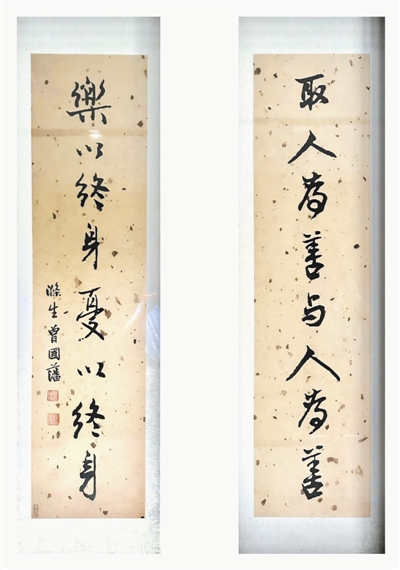 取人為善与人為善
樂以終身憂以終身
滌生曾國藩